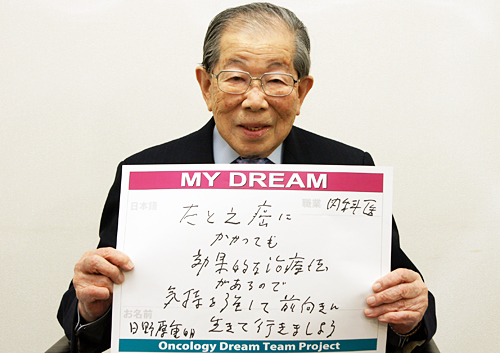 MY DREAM
日本語
職業 内科医
たとえ癌に
かかっても
効果的な治療法
があるので
気持を強くして前向きに
生きて行きましょう
お名前
日野原重明
Oncology Dream Team Project